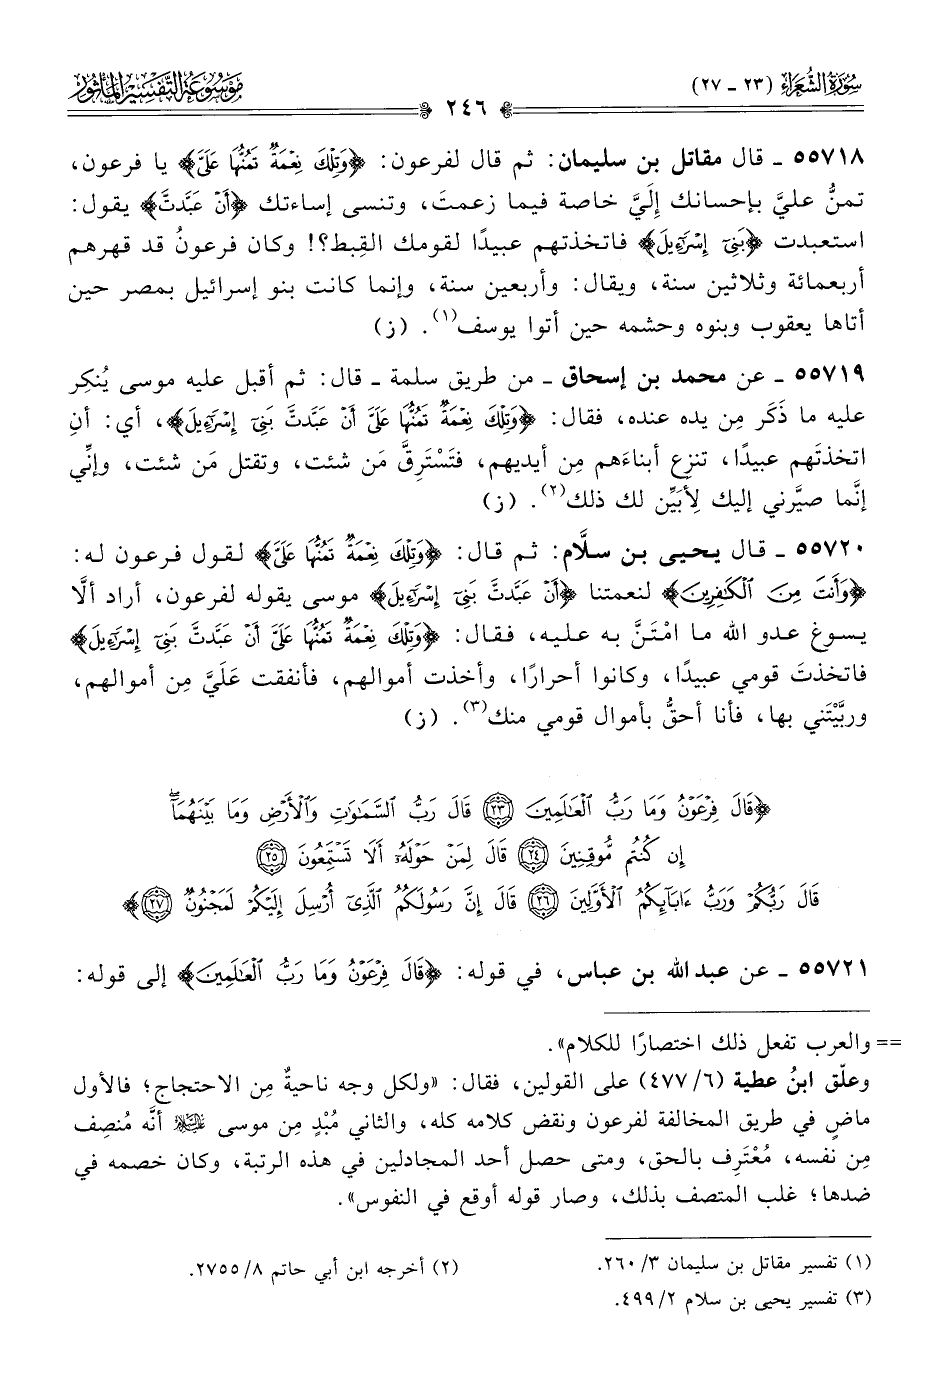 سُورَةُ الشُّعَرَاءِ (٢٣ ـ ٢٧)
٢٤٦
مَوْسُوعَةُ التَّفْسِيرِ المَأْثُور
٥٥٧١٨ ـ قال مقاتل بن سليمان: ثم قال لفرعون: ﴿وَتِلْكَ نِعْمَةٌ تَمُنُّهَا عَلَيَّ﴾ يا فرعون،
تمنُّ عليَّ بإحسانك إلَيَّ خاصة فيما زعمتَ، وتنسى إساءتك ﴿أَنْ عَبَّدتَّ﴾ يقول:
استعبدت ﴿بَنِي إِسْرَٰٓءِيلَ﴾ فاتخذتهم عبيدًا لقومك القِبط؟! وكان فرعونُ قد قهرهم
أربعمائة وثلاثين سنة، ويقال: وأربعين سنة، وإنما كانت بنو إسرائيل بمصر حين
أتاها يعقوب وبنوه وحشمه حين أتوا يوسف(١). (ز)
٥٥٧١٩ ـ عن محمد بن إسحاق ـ من طريق سلمة ـ قال: ثم أقبل عليه موسى يُنكِر
عليه ما ذَكَر مِن يده عنده، فقال: ﴿وَتِلْكَ نِعْمَةٌ تَمُنُّهَا عَلَيَّ أَنْ عَبَّدتَّ بَنِي إِسْرَٰٓءِيلَ﴾، أي: أنِ
اتخذتَهم عبيدًا، تنزِع أبناءَهم مِن أيديهم، فتَسْتَرِقَّ مَن شئت، وتقتل مَن شئت، وإنِّي
إنَّما صيَّرني إليك لِأُبَيِّن لك ذلك(٢). (ز)
٥٥٧٢٠ ـ قال يحيى بن سلَّام: ثم قال: ﴿وَتِلْكَ نِعْمَةٌ تَمُنُّهَا عَلَيَّ﴾ لقول فرعون له:
﴿وَأَنتَ مِنَ ٱلْكَٰفِرِينَ﴾ لنعمتنا ﴿أَنْ عَبَّدتَّ بَنِي إِسْرَٰٓءِيلَ﴾ موسى يقوله لفرعون، أراد ألَّا
يسوغ عدو الله ما امْتَنَّ به عليه، فقال: ﴿وَتِلْكَ نِعْمَةٌ تَمُنُّهَا عَلَيَّ أَنْ عَبَّدتَّ بَنِي إِسْرَٰٓءِيلَ﴾
فاتخذتَ قومي عبيدًا، وكانوا أحرارًا، وأخذت أموالهم، فأنفقت عَلَيَّ مِن أموالهم،
وربَّيْتَني بها، فأنا أحقُّ بأموال قومي منك(٣). (ز)
﴿قَالَ فِرْعَوْنُ وَمَا رَبُّ ٱلْعَٰلَمِينَ ٢٣ قَالَ رَبُّ ٱلسَّمَٰوَٰتِ وَٱلْأَرْضِ وَمَا بَيْنَهُمَآ
إِن كُنتُم مُّوقِنِينَ ٢٤ قَالَ لِمَنْ حَوْلَهُۥٓ أَلَا تَسْتَمِعُونَ ٢٥
قَالَ رَبُّكُمْ وَرَبُّ ءَابَآئِكُمُ ٱلْأَوَّلِينَ ٢٦ قَالَ إِنَّ رَسُولَكُمُ ٱلَّذِىٓ أُرْسِلَ إِلَيْكُمْ لَمَجْنُونٌ ٢٧﴾
٥٥٧٢١ ـ عن عبد الله بن عباس، في قوله: ﴿قَالَ فِرْعَوْنُ وَمَا رَبُّ ٱلْعَٰلَمِينَ﴾ إلى قوله:
== والعرب تفعل ذلك اختصارًا للكلام».
وعلّق ابنُ عطية (٦/ ٤٧٧) على القولين، فقال: «ولكل وجه ناحيةٌ مِن الاحتجاج؛ فالأول
ماضٍ في طريق المخالفة لفرعون ونقض كلامه كله، والثاني مُبْدٍ مِن موسى عليه السلام أنَّه مُنصِف
مِن نفسه، مُعْتَرِف بالحق، ومتى حصل أحد المجادلين في هذه الرتبة، وكان خصمه في
ضدها؛ غلب المتصف بذلك، وصار قوله أوقع في النفوس».
(١) تفسير مقاتل بن سليمان ٣/ ٢٦٠.
(٢) أخرجه ابن أبي حاتم ٨/ ٢٧٥٥.
(٣) تفسير يحيى بن سلام ٢/ ٤٩٩.